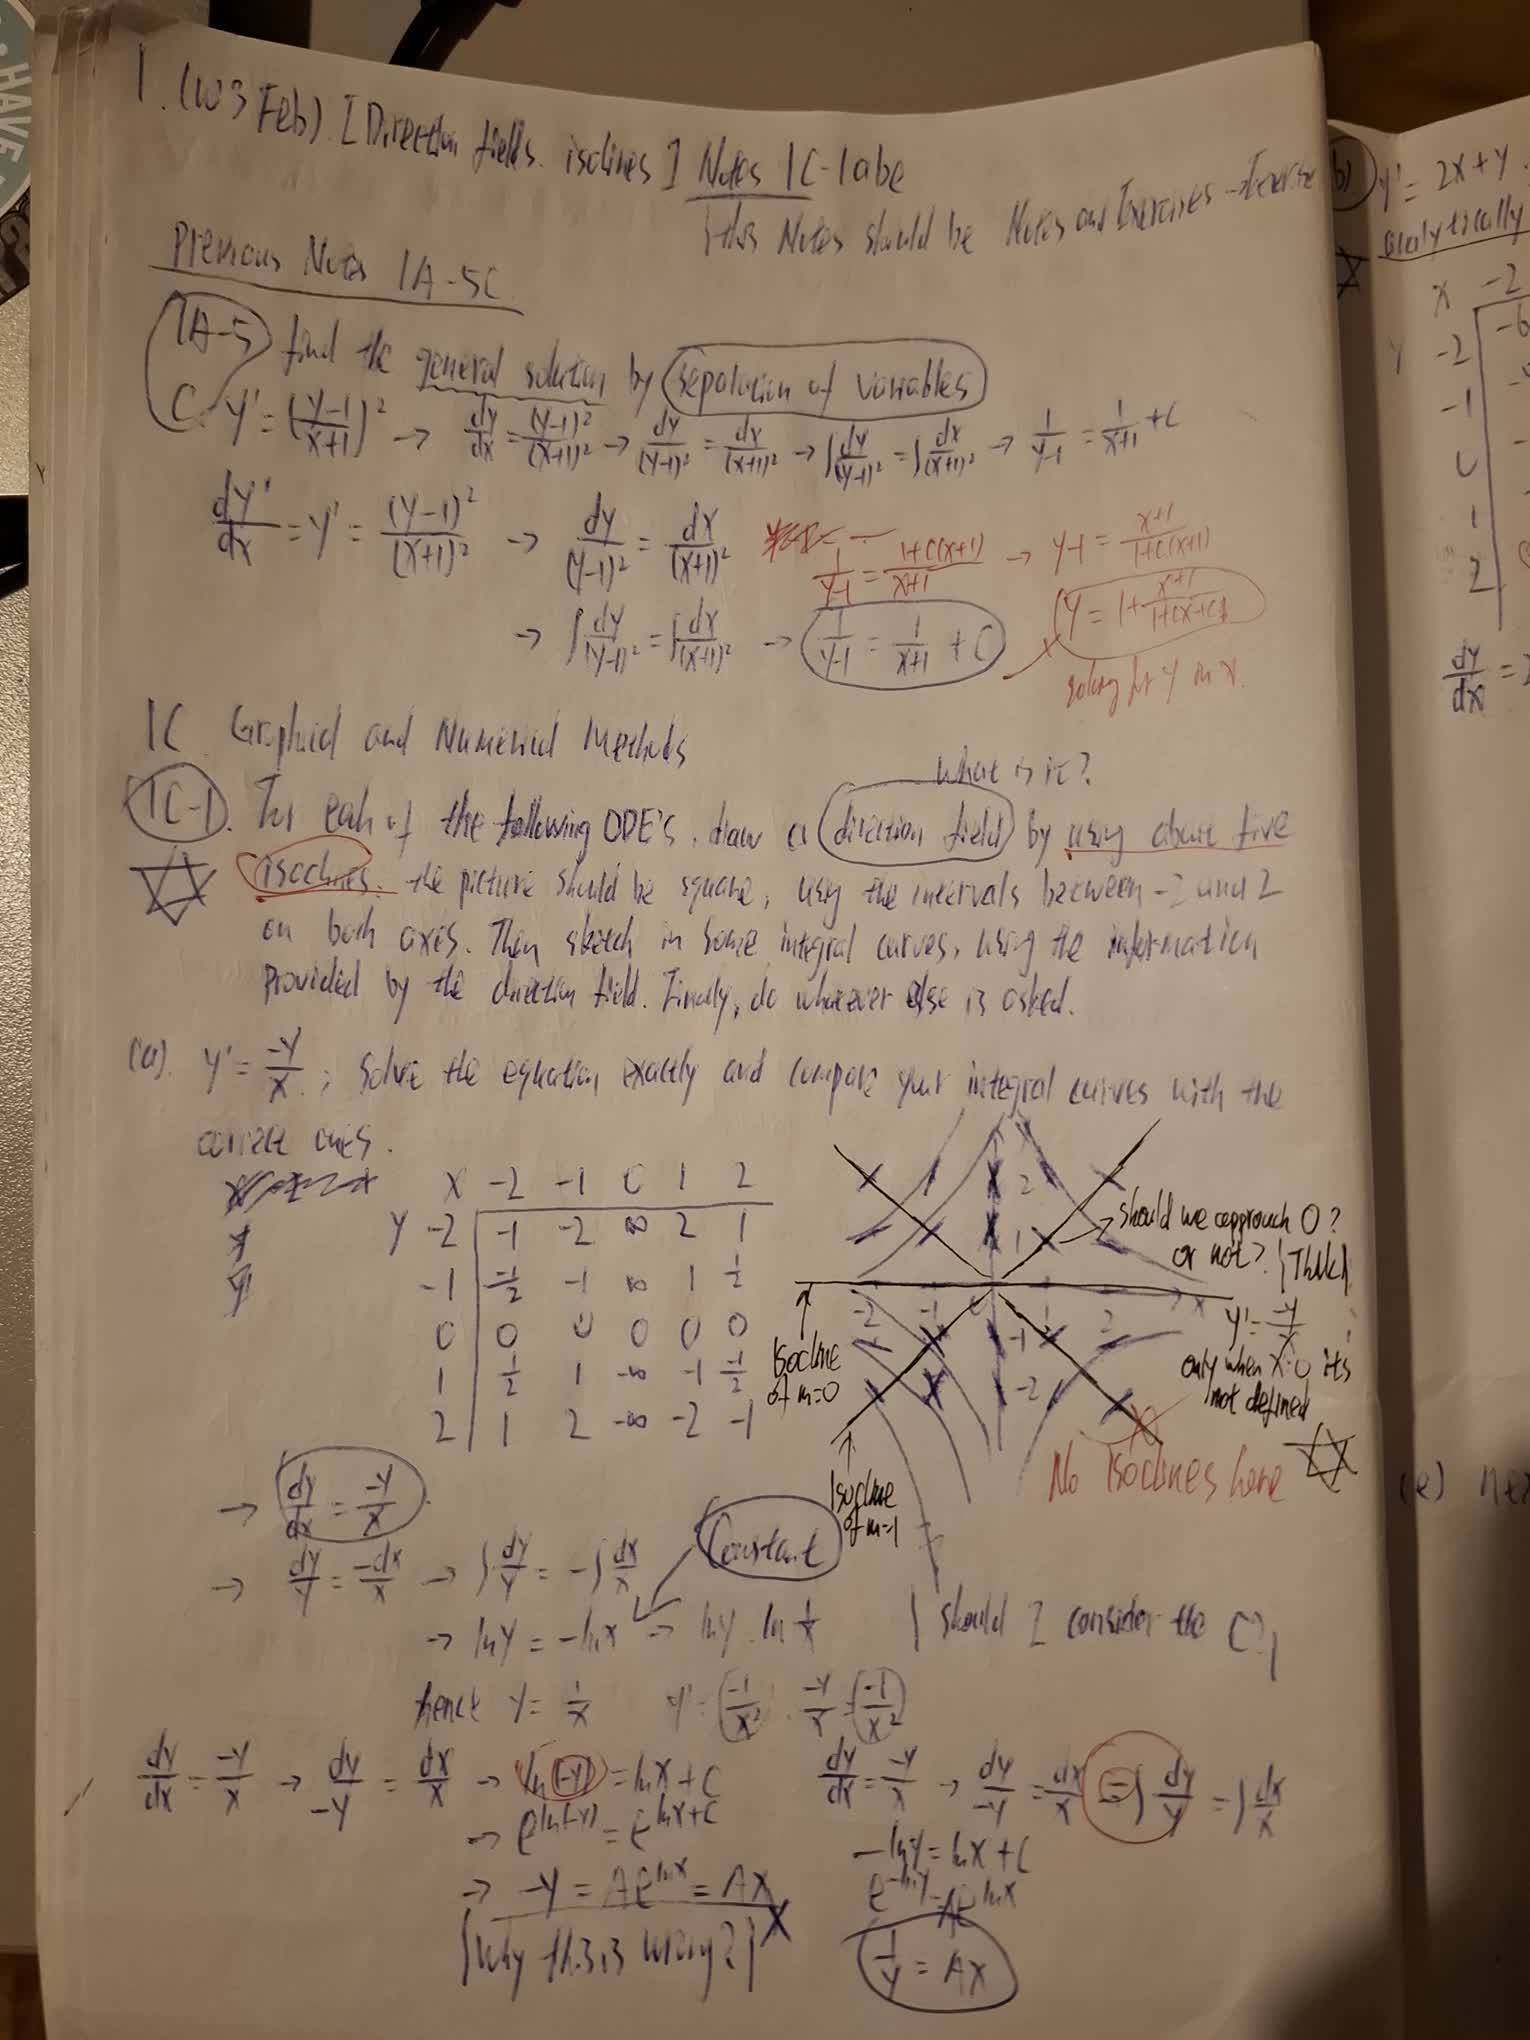 1. (W3 Feb). [Direction fields. isoclines] Notes 1C-1abe
{this Notes should be Notes and Exercises → Exercise
Previous Notes 1A-5C
1A-5 find the general solution by sepalation of variables
C. y' = (y-1/x+1)² → dy/dx = (y-1)²/(x+1)² → dy/(y-1)² = dx/(x+1)² → ∫dy/(y-1)² = ∫dx/(x+1)² → 1/y-1 = 1/x+1 + C
dy'/dx = y' = (y-1)²/(x+1)² → dy/(y-1)² = dx/(x+1)²
1/y-1 = 1+C(x+1)/x+1 → y-1 = x+1/1+C(x+1)
→ ∫dy/(y-1)² = ∫dx/(x+1)² → 1/y-1 = 1/x+1 + C
solving for y in x.
1C Graphical and Numerical Methods
What is it?
1C-1. For each of the following ODE's, draw a direction field by using about five
isoclines. the picture should be square, using the intervals between -2 and 2
on both axes. Then sketch in some integral curves, using the information
provided by the direction field. Finally, do whatever else is asked.
(a). y' = -y/x ; Solve the equation exactly and compare your integral curves with the
correct ones.
x -2 -1 0 1 2
y -2 -1 -2 ∞ 2 1
-1 -1/2 -1 ∞ 1 1/2
0 0 0 0 0 0
1 1/2 1 -∞ -1 -1/2
2 1 2 -∞ -2 -1
2
1
-2 -1 0 1 2 x
-1
-2
should we approach 0?
or not? {Think}
y' = -y/x
only when x=0 it's
not defined
Isocline
of m=0
Isocline
of m=1
No Isoclines here
→ dy/dx = -y/x
→ dy/y = -dx/x → ∫dy/y = -∫dx/x
Constant
→ ln y = -ln x → ln y = ln 1/x
{should I consider the C?}
hence y = 1/x y' = (-1/x²) -y/x = (-1/x²)
dy/dx = -y/x → dy/-y = dx/x → ln(-y) = ln x + C
→ e^ln(-y) = e^lnx+C
→ -y = Ae^lnx = Ax
{Why this is wrong?} X
dy/dx = -y/x → dy/-y = dx/x = -∫dy/y = ∫dx/x
-ln y = ln x + C
e^-lny = Ae^lnx
1/y = Ax
b) y' = 2x+y.
x -2
y -2 -6
-1
0
1
2
dy/dx = 2
(e) nex
HAVE